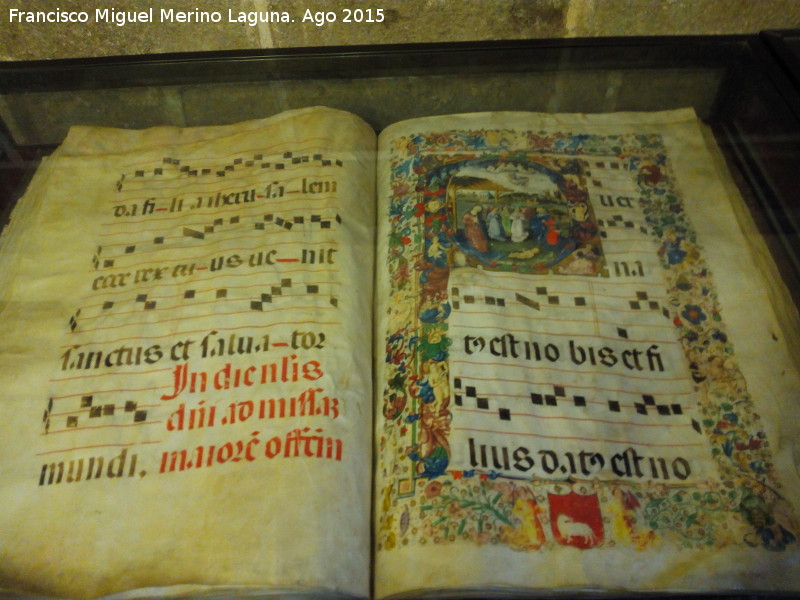 Francisco Miguel Merino Laguna. Ago 2015
da fi-li a iheru-sa-lem
ecce rex tu-us ue-nit
sanctus et salua-tor
In die nlis
dñi ad missaz
mundi. maiorē offm
uer
na
tus est no bis et fi
lius datus est no